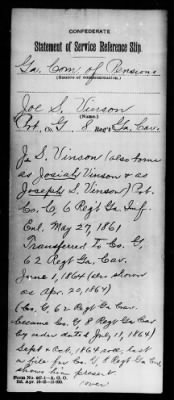 CONFEDERATE
Statement of Service Reference Slip.
Ga. Com. of Pensions
Joe S. Vinson
(Name.)
Pvt. Co. G 8 Reg't Ga. Cav.
Jo S. Vinson (also borne
as Josiah Vinson & as
Joseph S. Vinson) Pvt.
Co. C, 6 Reg't Ga. Inf.
Enl. May 27, 1861
Transferred to Co. G,
62 Reg't Ga. Cav.
June 1, 1864 (also shown
as Apr. 20, 1864)
(Co. G, 62 Reg't Ga. Cav.
became Co. G, 8 Reg't Ga. Cav
by order dated July 11, 1864)
Sept & Oct, 1864 roll, last
on file for Co. G, 8 Reg't Ga Cav
shows him present
over